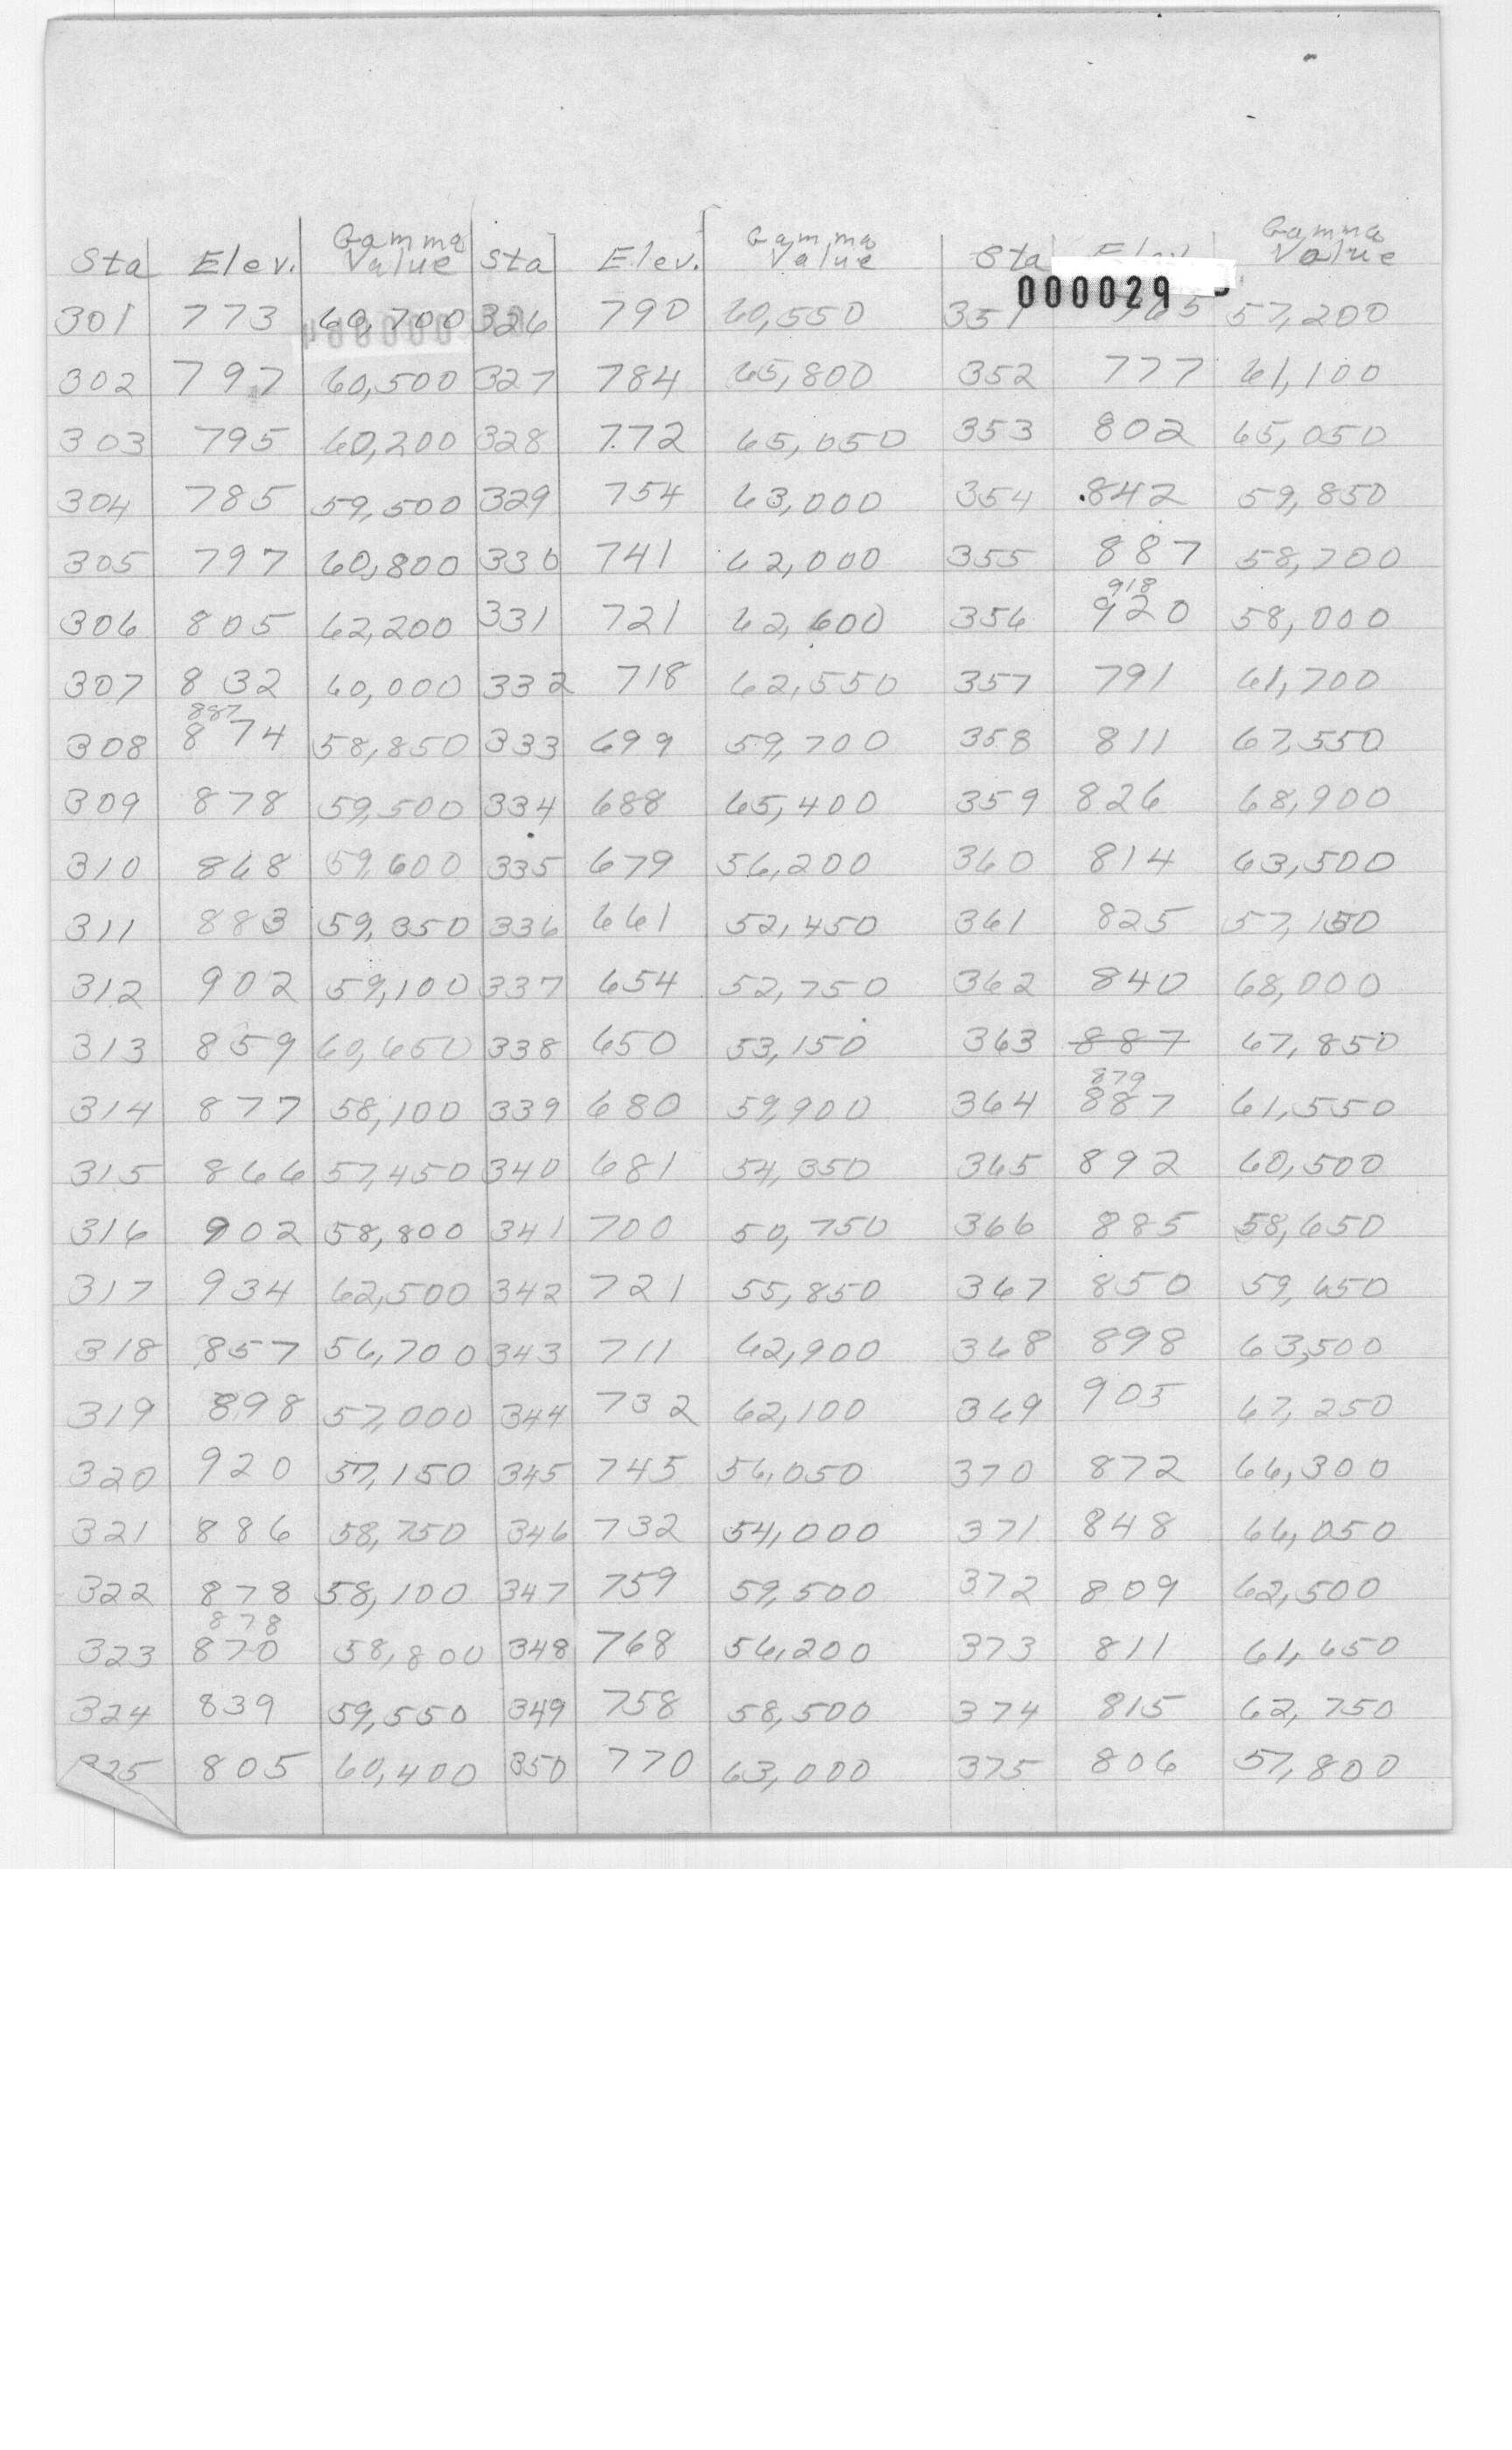 Gamma Gamma Gamma
Sta Elev. Value Sta Elev. Value Sta Value
000029
301 773 60,700 326 790 60,550 351 57,200
302 797 60,500 327 784 65,800 352 777 61,100
303 795 60,200 328 772 65,050 353 802 65,050
304 785 59,500 329 754 63,000 354 842 59,850
305 797 60,800 330 741 62,000 355 887 58,700
918
306 805 62,200 331 721 62,600 356 920 58,000
307 832 60,000 332 718 62,550 357 791 61,700
887
308 874 58,850 333 699 59,700 358 811 67,550
309 878 59,500 334 688 65,400 359 826 68,900
310 868 59,600 335 679 56,200 360 814 63,500
311 883 59,350 336 661 52,450 361 825 57,150
312 902 59,100 337 654 52,750 362 840 68,000
313 859 60,650 338 650 53,150 363 887 67,850
879
314 877 58,100 339 680 59,900 364 887 61,550
315 866 57,450 340 681 54,350 365 892 60,500
316 902 58,800 341 700 50,750 366 885 58,650
317 934 62,500 342 721 55,850 367 850 59,650
318 857 56,700 343 711 62,900 368 898 63,500
319 898 57,000 344 732 62,100 369 905 67,250
320 920 57,150 345 745 56,050 370 872 66,300
321 886 58,750 346 732 54,000 371 848 66,050
322 878 58,100 347 759 59,500 372 809 62,500
878
323 870 58,800 348 768 56,200 373 811 61,650
324 839 59,550 349 758 58,500 374 815 62,750
325 805 60,400 350 770 63,000 375 806 57,800